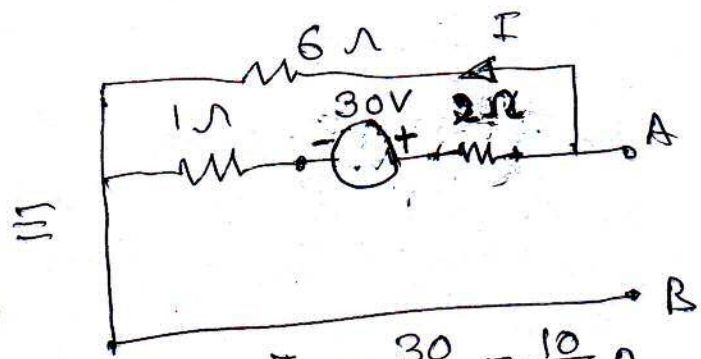 6 Ω I
1Ω - 30V + 2Ω A
≡
B
30 10